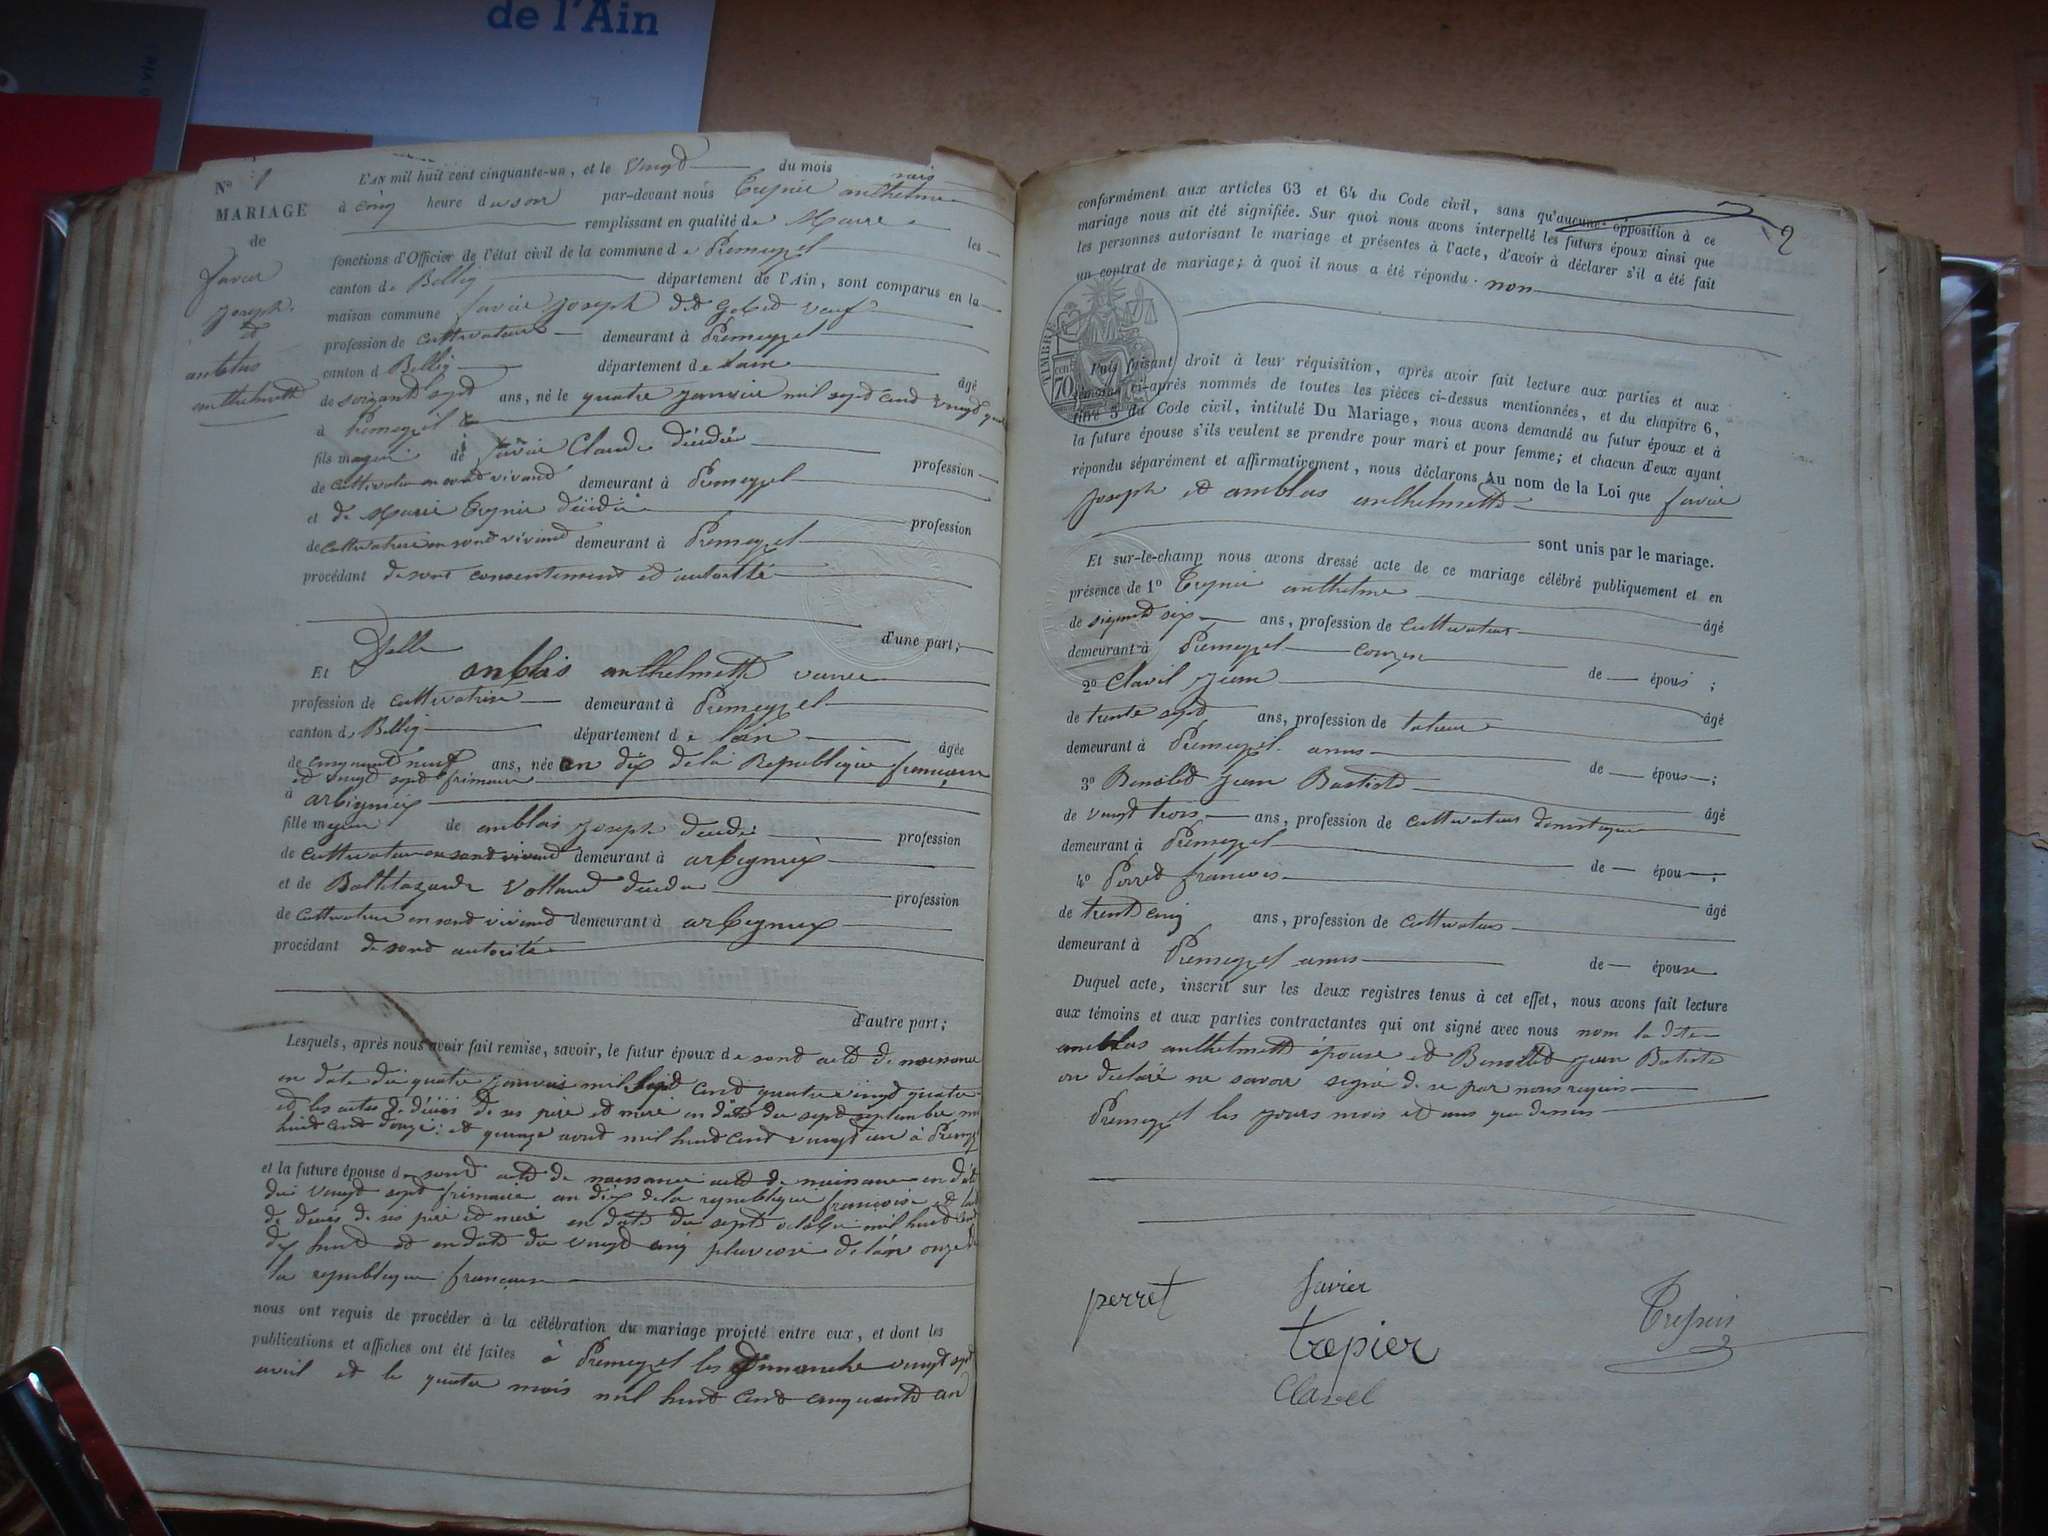 de l'Ain
N° 1
MARIAGE
de
favier
joseph
et
amblas
anthelmette
L'AN mil huit cent cinquante-un, et le vingt du mois mais
à cinq heure du soir par-devant nous trepier anthelme
remplissant en qualité de Maire les
fonctions d'Officier de l'état civil de la commune de Premeyzel
canton de Belley département de l'Ain, sont comparus en la
maison commune favier joseph dit veuf
profession de cultivateur demeurant à Premeyzel
canton d Belley département de lain âgé
de soixante sept ans, né le quatre janvier mil sept cent vingt quatre
à Premeyzel
fils majeur de favier Claude décédé profession
de cultivateur en sont vivant demeurant à Premeyzel
et de Marie trepier décédée profession
de cultivatrice en sont vivant demeurant à Premeyzel
procédant de sont consentement et autorité
d'une part;
Et Delle amblas anthelmette veuve
profession de cultivatrice demeurant à Premeyzel
canton d Belley département de lain âgée
de cinquante neuf ans, née an dix de la Republique françoise
et vingt sept frimaire
à arbignieux
fille majeur de amblas joseph décédé profession
de cultivateur en sont vivant demeurant à arbignieux
et de Balthazarde Volland décédée profession
de cultivatrice en sont vivant demeurant à arbignieux
procédant de sont autorité
d'autre part;
Lesquels, après nous avoir fait remise, savoir, le futur époux de sont acte de naissance
en date du quatre janvier mil sept cent quatre vingt quatre
et les actes de décès de ses père et mère en date du sept septembre mil
huit cent douze: et quinze avril mil huit cent vingt un à Premeyzel
et la future épouse de sont acte de naissance acte de naissance en date
du vingt sept frimaire an dix de la republique françoise et
de décès de ses père et mère en date du sept octobre mil huit cent
dix huit et en date du vingt cinq pluviose de l'an onze de
la republique françoise
nous ont requis de procéder à la célébration du mariage projeté entre eux, et dont les
publications et affiches ont été faites à Premeyzel les dimanche vingt sept
avril et le quatre mais mil huit cent cinquante un
2
conformément aux articles 63 et 64 du Code civil, sans qu'aucune opposition à ce
mariage nous ait été signifiée. Sur quoi nous avons interpellé les futurs époux ainsi que
les personnes autorisant le mariage et présentes à l'acte, d'avoir à déclarer s'il a été fait
un contrat de mariage; à quoi il nous a été répondu. non
TIMBRE
70
cent
Puis faisant droit à leur réquisition, après avoir fait lecture aux parties et aux
témoins ci-après nommés de toutes les pièces ci-dessus mentionnées, et du chapitre 6,
titre 5 du Code civil, intitulé Du Mariage, nous avons demandé au futur époux et à
la future épouse s'ils veulent se prendre pour mari et pour femme; et chacun d'eux ayant
répondu séparément et affirmativement, nous déclarons Au nom de la Loi que favier
joseph et amblas anthelmette
sont unis par le mariage.
Et sur-le-champ nous avons dressé acte de ce mariage célébré publiquement et en
présence de 1° trepier anthelme âgé
de soixante six ans, profession de cultivateur
demeurant à Premeyzel couzin de époux;
2° Clavel jean âgé
de trente sept ans, profession de
demeurant à Premeyzel amis de épous;
3° Benoited jean Bastiste âgé
de vingt trois ans, profession de cultivateur domestique
demeurant à Premeyzel de épou;
4° Perret francois âgé
de trent cinq ans, profession de cultivateur
demeurant à Premeyzel amis de épouse
Duquel acte, inscrit sur les deux registres tenus à cet effet, nous avons fait lecture
aux témoins et aux parties contractantes qui ont signé avec nous nom la dite
amblas anthelmette épouse et Benoited jean Batiste
on declaré ne savoir signé de ce par nous requis
Premeyzel les jours mois et ans que dessus
perret favier trepier
trepier
Clavel